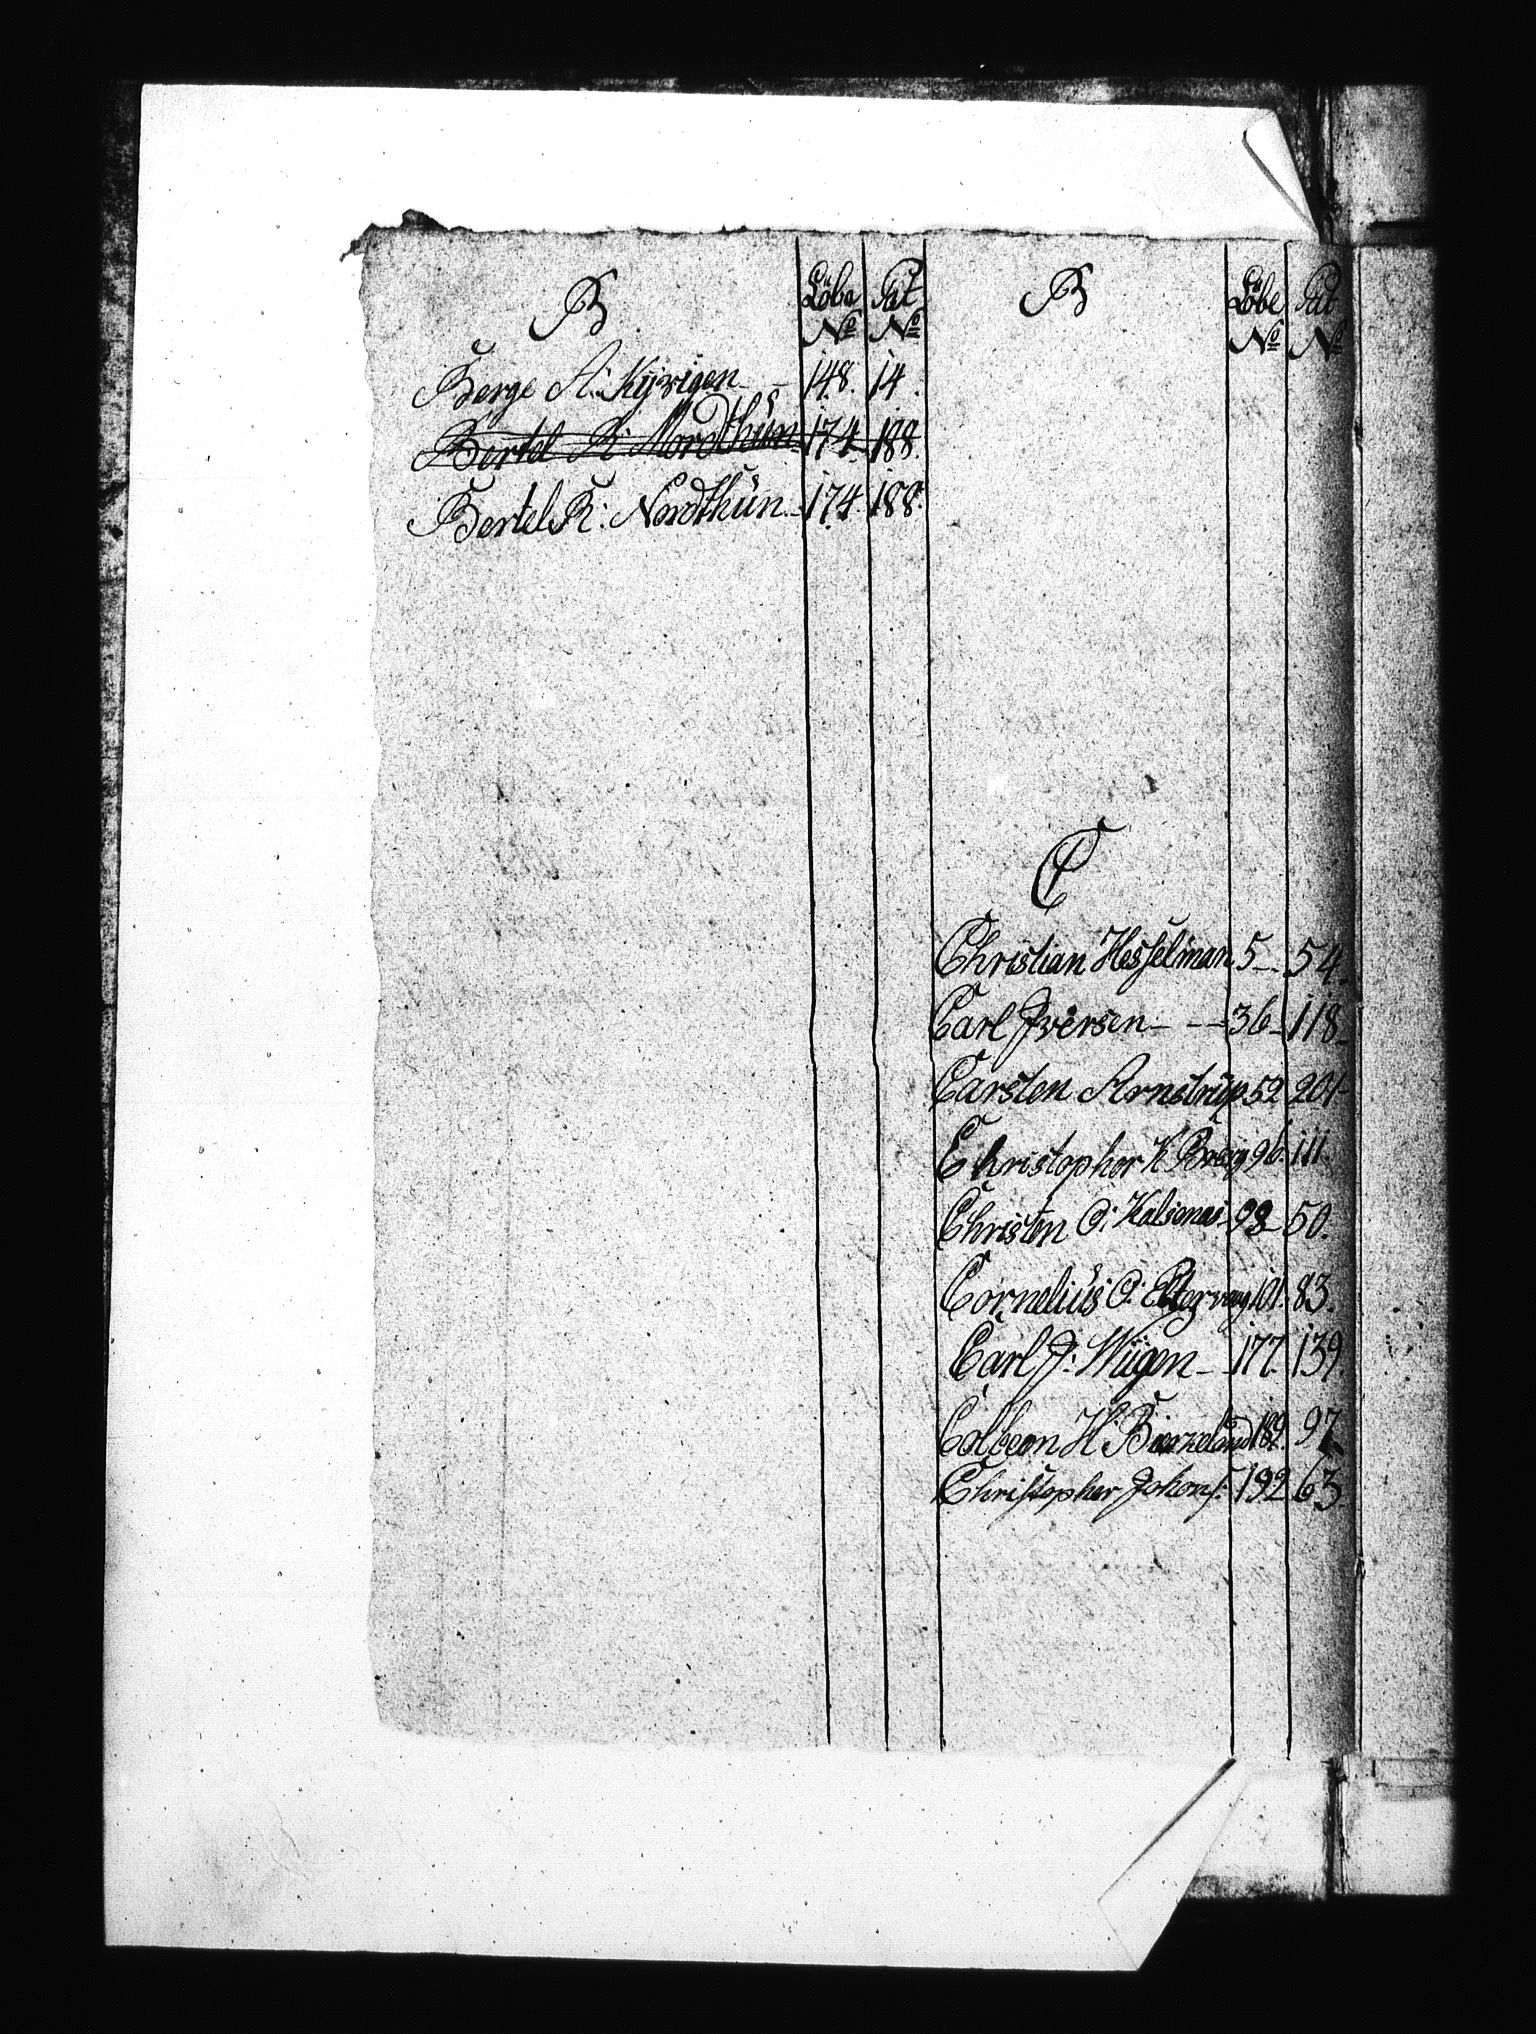 B Löbe Pat
No No
Berge A: Kyvigen 148. 14.
Bertel R: Nordthün 174. 188.
Bertel R: Nordthün. 174. 188.
B Löbe Pat
No No
C
Christian Hesselman 5 54
Carl Iversen 36 118
Carsten Arnstrup 52 201
Christopher K 96. 111.
Christen O: 98 50.
Cornelius O: 101. 83.
Carl J: Wiigen 177. 139.
Colbeon H: 189. 97
Christopher Johans: 192 63